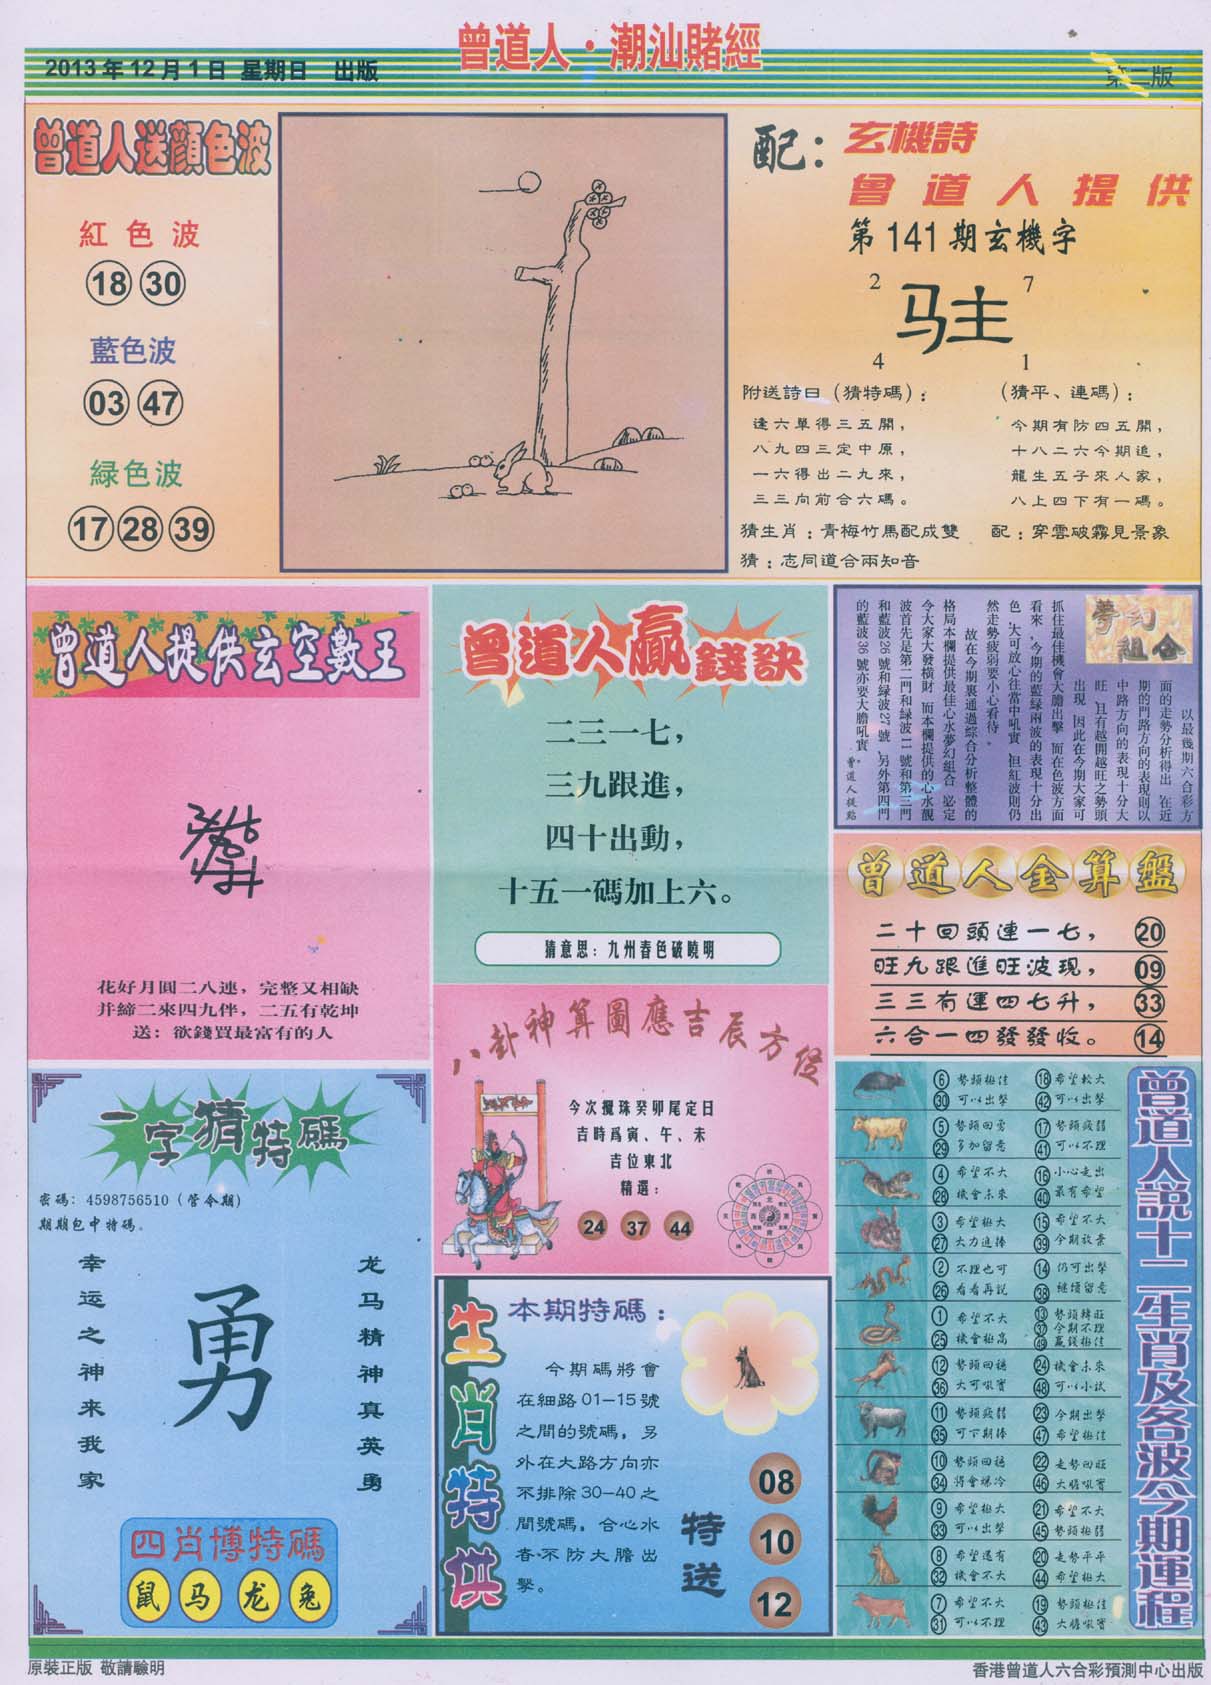 曾道人·潮汕賭經
2013年12月1日 星期日 出版
第二版
曾道人送顔色波
紅色波
18 30
藍色波
03 47
緑色波
17 28 39
配：玄機詩
曾道人提供
第141期玄機字
2 7
驻
4 1
附送詩曰（猜特碼）：
逢六單得三五開，
八九四三定中原，
一六得出二九來，
三三向前合六碼。
（猜平、連碼）：
今期有防四五開，
十八二六今期追，
龍生五子來人家，
八上四下有一碼。
猜生肖：青梅竹馬配成雙 配：穿雲破霧見景象
猜：志同道合兩知音
曾道人提供玄空數王
花好月圓二八連，完整又相缺
并締二來四九伴，二五有乾坤
送：欲錢買最富有的人
曾道人贏錢訣
二三一七，
三九跟進，
四十出動，
十五一碼加上六。
猜意思：九州春色破曉明
夢幻組合
以最幾期六合彩方
面的走勢分析得出 在近
期的門路方向的表現則以
中路方向的表現十分大
旺 且有越開越旺之勢頭
出現 因此在今期大家可
抓住最佳機會大膽出擊 而在色波方面
看來，今期的藍緑兩波的表現十分出
色，大可放心在當中吼實 但紅波則仍
然走勢疲弱要小心看待。
故在今期裏通過綜合分析整體的
格局本欄提供最佳心水夢幻組合 必定
令大家大發橫財 而本欄提供的心水靚
波首先是第二門和緑波11號和第三門
和藍波26號和緑波27號，另外第四門
的藍波36號亦要大膽吼實。
曾道人提點
曾道人金算盤
二十回頭連一七， 20
旺九跟進旺波現， 09
三三有運四七升， 33
六合一四發發收。 14
八卦神算圖應吉辰方位
今次攪珠癸卯尾定日
吉時爲寅、午、未
吉位東北
精選：
24 37 44
一字猜特碼
密碼：4598756510（管令期）
期期包中特碼。
幸运之神来我家
勇
龙马精神真英勇
四肖博特碼
鼠 马 龙 兔
生肖特供
本期特碼：
今期碼將會
在細路01—15號
之間的號碼，另
外在大路方向亦
不排除30—40之
間號碼，合心水
者不防大膽出
擊。
特送
08
10
12
曾道人説十二生肖及各波今期運程
6 勢頭極佳 18 希望較大
30 可以出擊 42 可以出擊
5 勢頭回勇 17 勢頭疲弱
29 多加留意 41 可以不理
4 希望不大 16 小心走出
28 機會未來 40 最有希望
3 希望極大 15 希望不大
27 大力追捧 39 今期放棄
2 不理也可 14 仍可出擊
26 看看再説 38 繼續留意
1 希望不大 13 勢頭轉旺
25 機會極高 37 今期不理
49 贏錢極佳
12 勢頭回穩 24 機會未來
36 大可吼實 48 可以小試
11 勢頭疲弱 23 今期出擊
35 可下期捧 47 希望極佳
10 勢頭回穩 22 走勢回旺
34 將會爆冷 46 大膽吼實
9 希望極大 21 希望不大
33 可以出擊 45 勢頭極弱
8 希望還有 20 走勢平平
32 機會不大 44 希望極大
7 希望不大 19 勢頭極佳
31 可以不理 43 大膽吼實
原裝正版 敬請驗明
香港曾道人六合彩預測中心出版